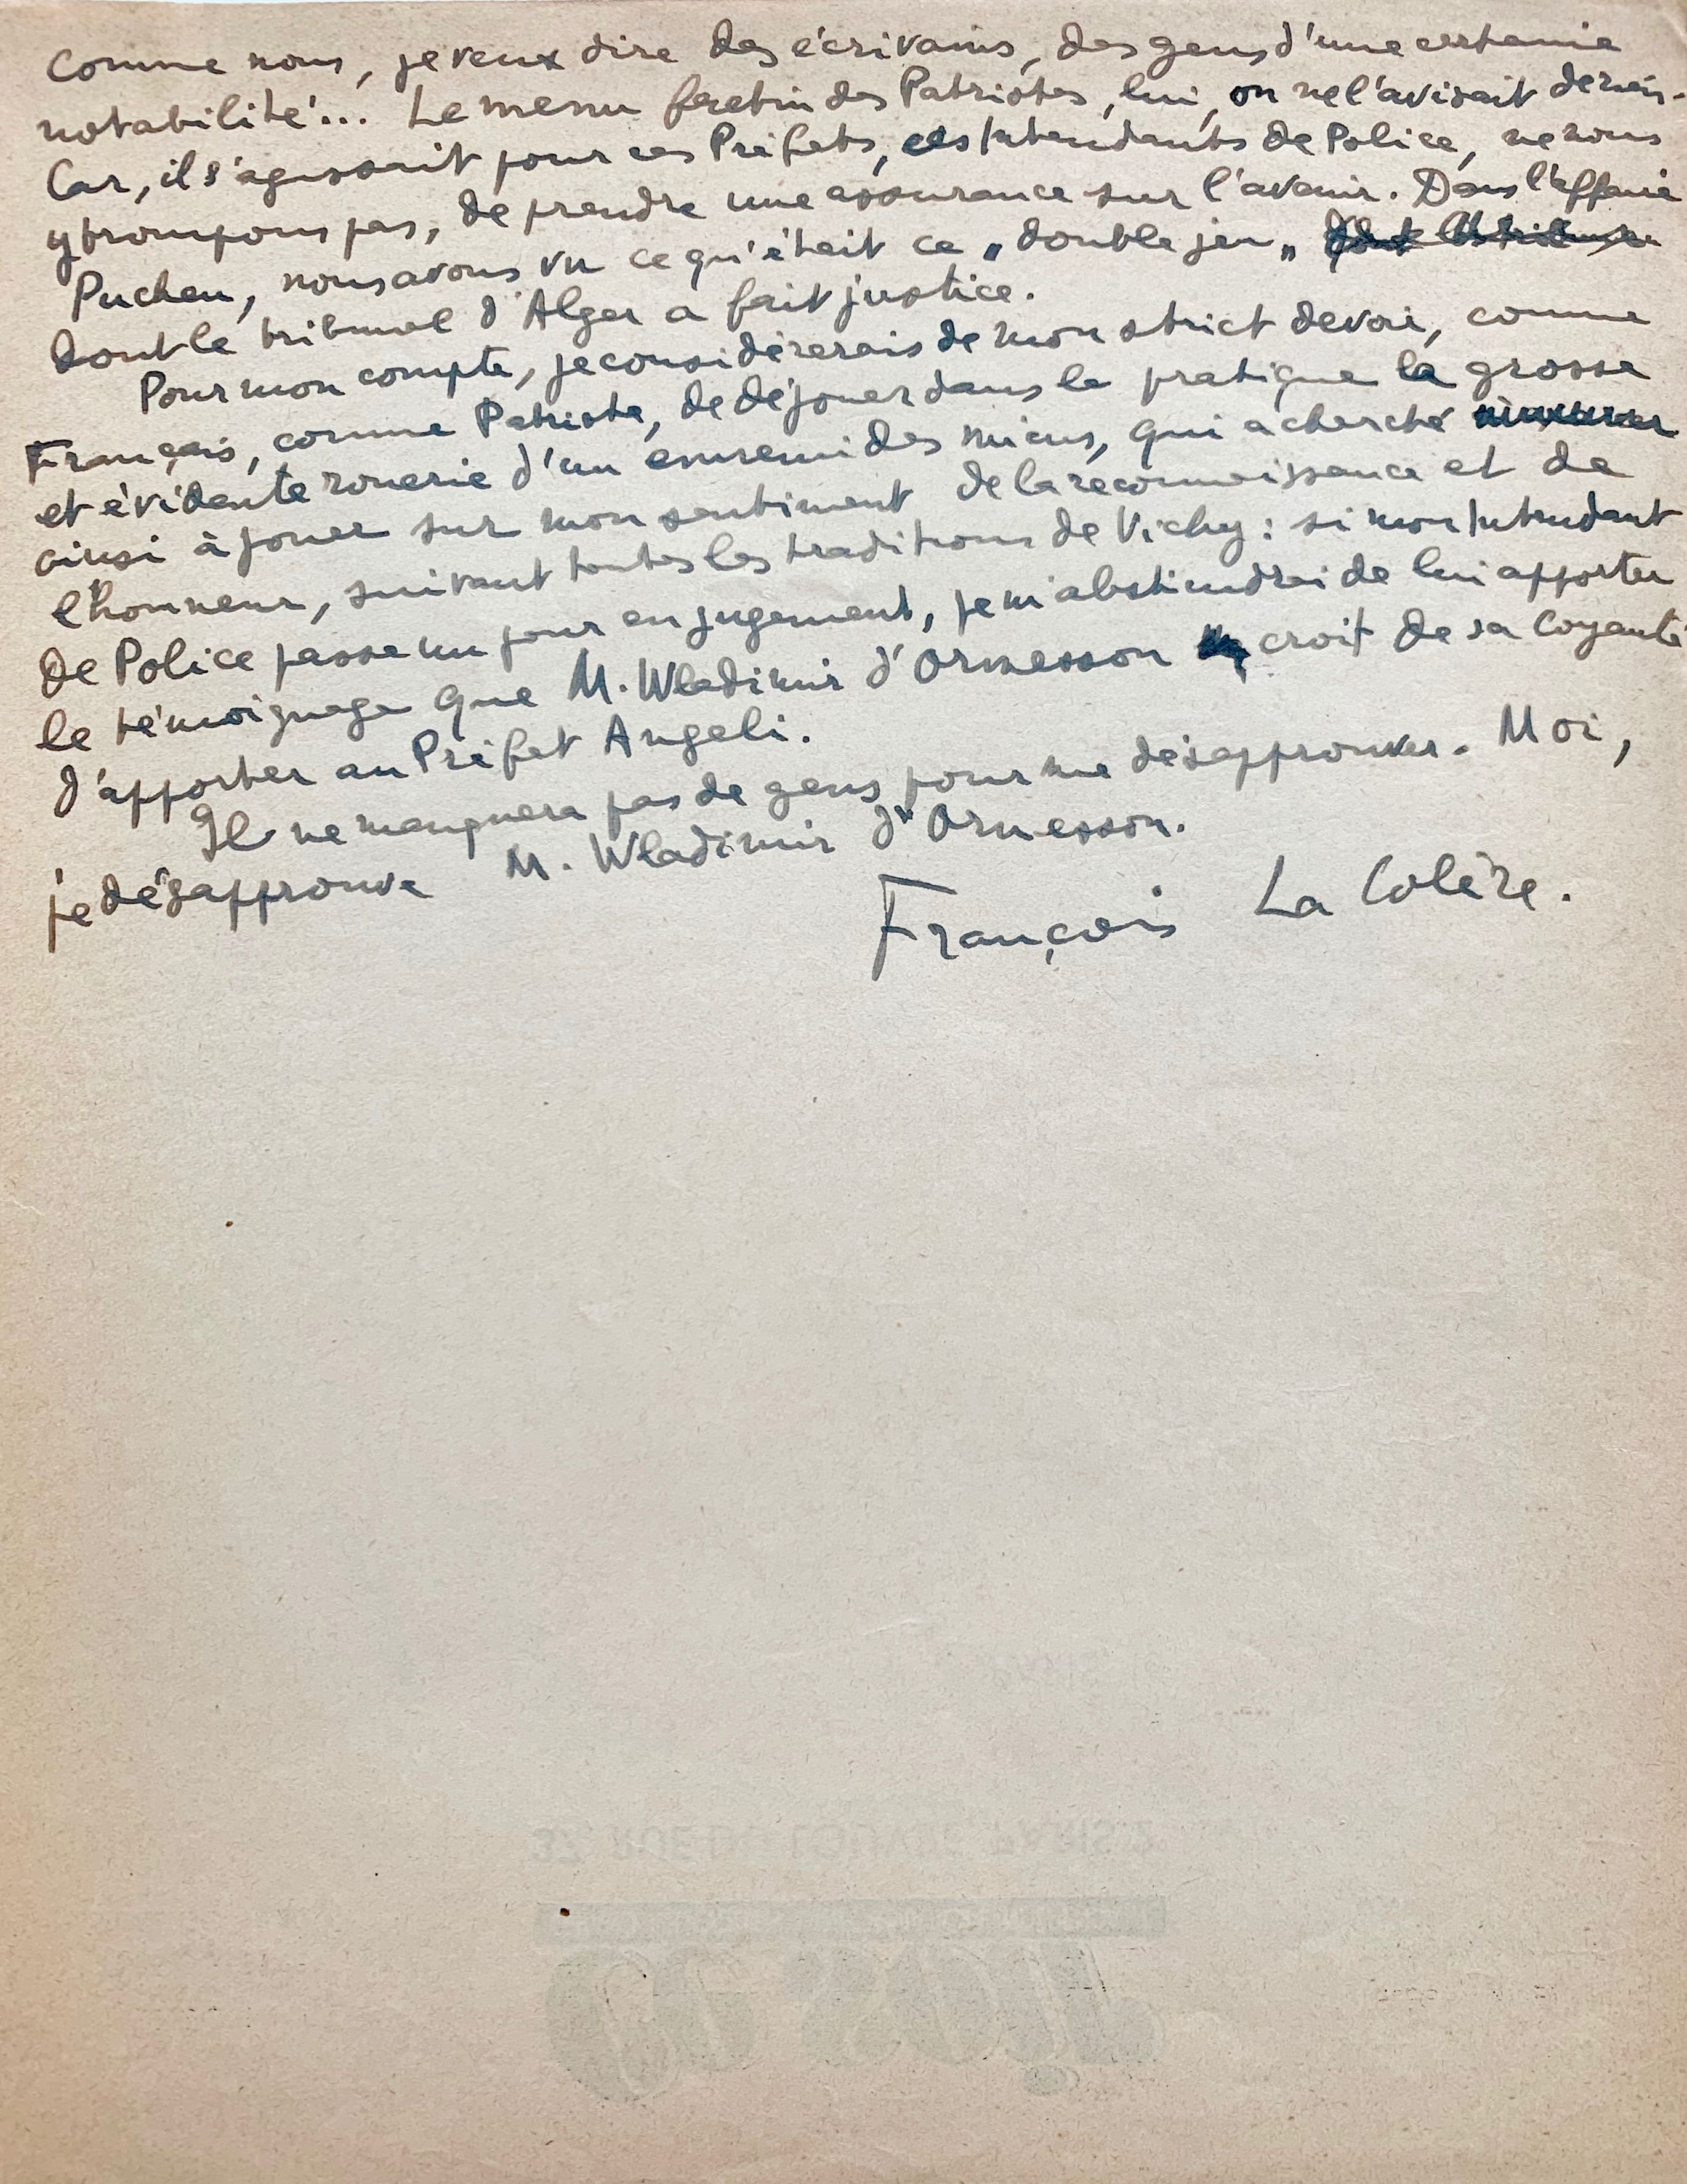 comme nous, je veux dire des écrivains, des gens d'une certaine
notabilité... Le menu fretin des Patriotes, lui, on ne l'avisait de rien.
Car, il s'agissait pour ces Préfets, ces Intendants de Police, ne nous
y trompons pas, de prendre une assurance sur l'avenir. Dans l'affaire
Pucheu, nous avons vu ce qu'était ce „double jeu„
dont le tribunal d'Alger a fait justice.
Pour mon compte, je considérerais de mon strict devoir, comme
Français, comme Patriote, de déjouer dans la pratique la grosse
et évidente rouerie d'un ennemi des miens, qui a cherché
ainsi à jouer sur mon sentiment de la reconnaissance et de
l'honneur, suivant toutes les traditions de Vichy: si mon Intendant
de Police passe un jour en jugement, je m'abstiendrai de lui apporter
le témoignage que M. Wladimir d'Ormesson croit de sa loyauté
d'apporter au Préfet Angeli.
Il ne manquera pas de gens pour me désapprouver. Moi,
je désapprouve M. Wladimir d'Ormesson.
François La Colère.
37, RUE DU LOUVRE, PARIS-2
Ce soir